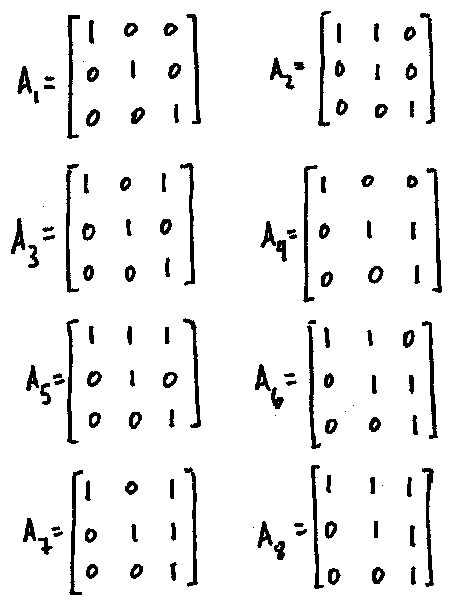 A₁= [1 0 0; 0 1 0; 0 0 1] A₂= [1 1 0; 0 1 0; 0 0 1]
A₃= [1 0 1; 0 1 0; 0 0 1] A₄= [1 0 0; 0 1 1; 0 0 1]
A₅= [1 1 1; 0 1 0; 0 0 1] A₆= [1 1 0; 0 1 1; 0 0 1]
A₇= [1 0 1; 0 1 1; 0 0 1] A₈= [1 1 1; 0 1 1; 0 0 1]